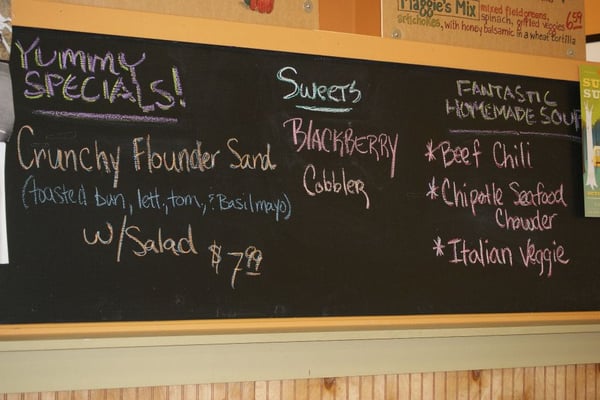 Maggie's Mix
mixed field greens,
spinach, grilled veggies
artichokes, with honey balsamic in a wheat tortilla
6.59
Yummy
Specials!
Crunchy Flounder Sand
(toasted bun, lett, tom, & Basil mayo)
w/Salad $7.99
Sweets
Blackberry
Cobbler
Fantastic
Homemade Soup
*Beef Chili
*Chipotle Seafood
Chowder
*Italian Veggie